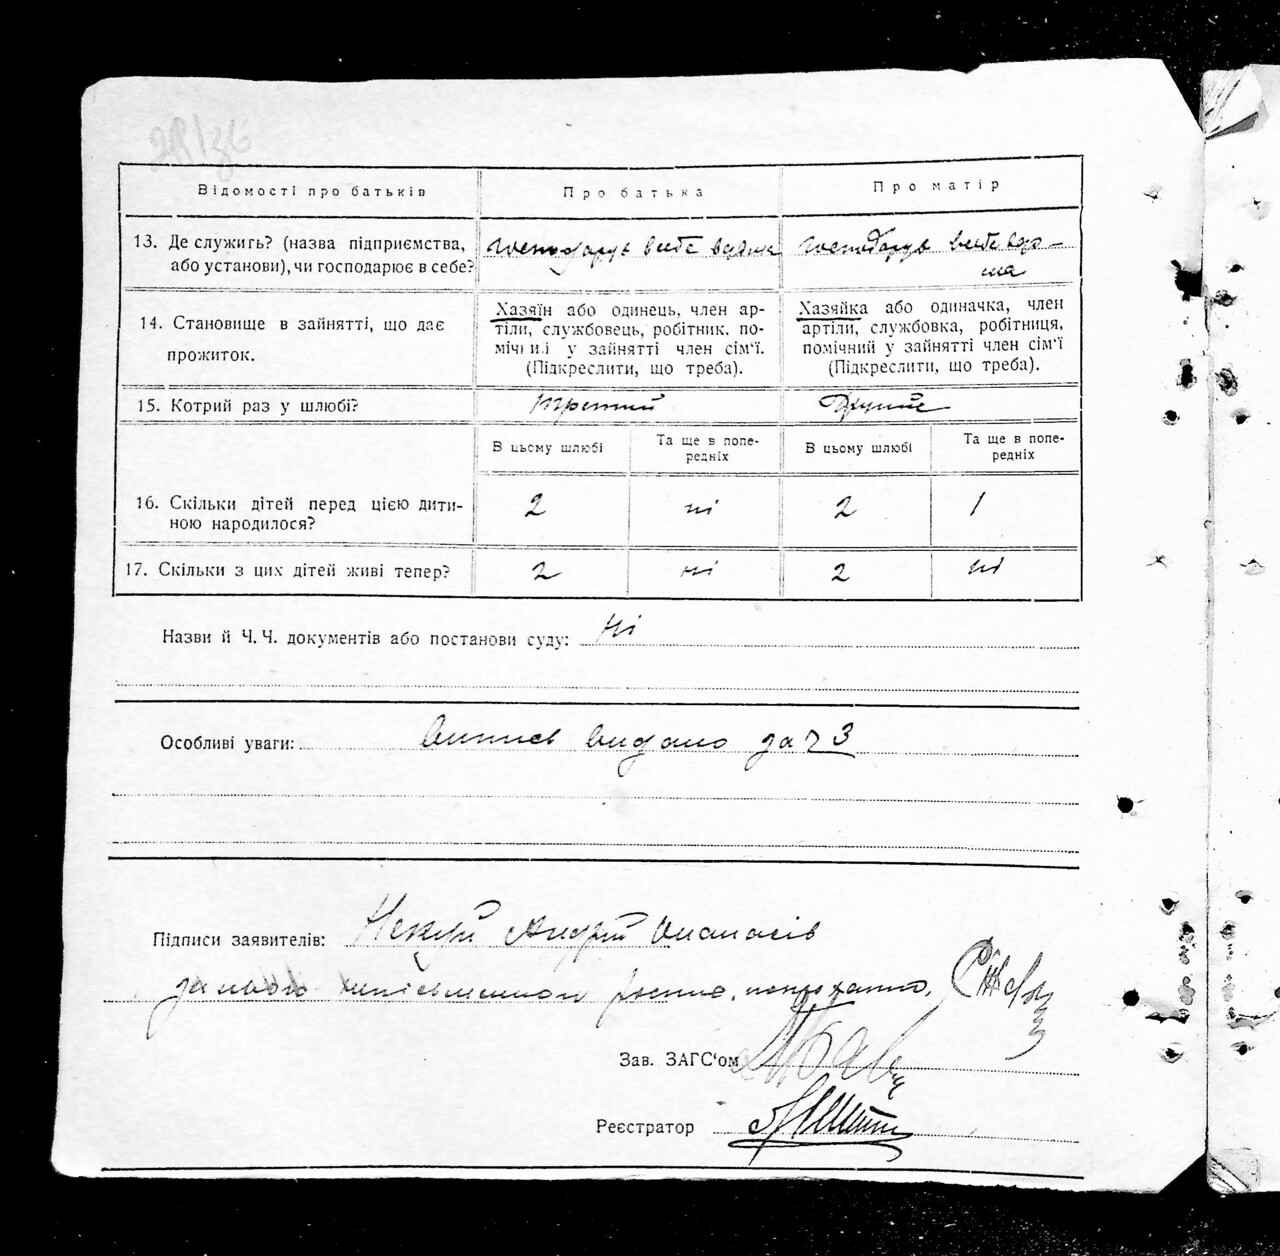 28/36
Відомості про батьків
Про батька
Про матір
13. Де служить? (назва підприємства, або установи), чи господарює в себе?
господарує в себе вдома
господарує в себе вдо-
ма
14. Становище в зайнятті, що дає
прожиток.
Хазяїн або одинець, член ар-
тіли, службовець, робітник, по-
мічний у зайнятті член сім'ї.
(Підкреслити, що треба).
Хазяйка або одиначка, член
артіли, службовка, робітниця,
помічний у зайнятті член сім'ї
(Підкреслити, що треба).
15. Котрий раз у шлюбі?
третий
Другий
В цьому шлюбі
Та ще в попе-
редніх
В цьому шлюбі
Та ще в попе-
редніх
16. Скільки дітей перед цією дити-
ною народилося?
2
ні
2
1
17. Скільки з цих дітей живі тепер?
2
ні
2
ні
Назви й Ч.Ч. документів або постанови суду: ні
Особливі уваги: Випис видано за ч 3
Підписи заявителів: Некуй Андрій Опанасів
за його неписьменного
Зав. ЗАГС'ом
Реєстратор